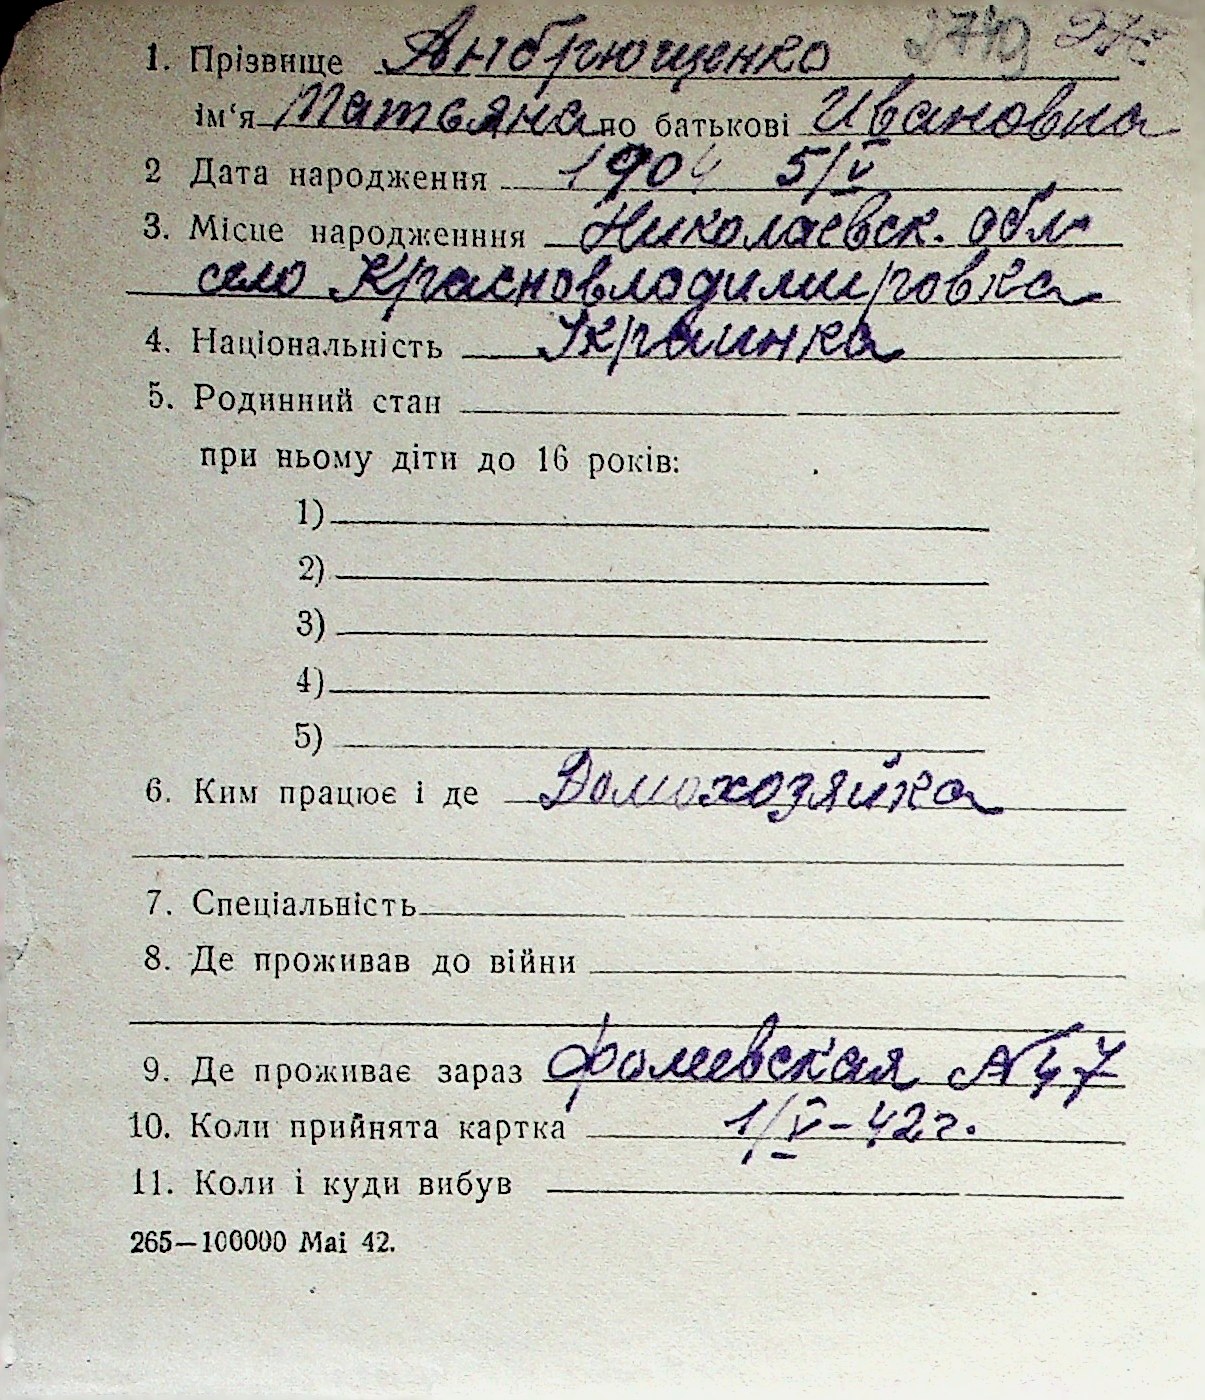 2749
1. Прізвище Анбрющенко
ім'я Татьяна по батькові Ивановна
2 Дата народження 1904 5/V
3. Місце народженння Николаевск. обл
село Красновлодимировка
4. Національність Украинка
5. Родинний стан
при ньому діти до 16 років:
1)
2)
3)
4)
5)
6. Ким працює і де Домохозяйка
7. Спеціальність
8. Де проживав до війни
9. Де проживає зараз № 47
10. Коли прийнята картка 1/V – 42 г.
11. Коли і куди вибув
265—100000 Mai 42.